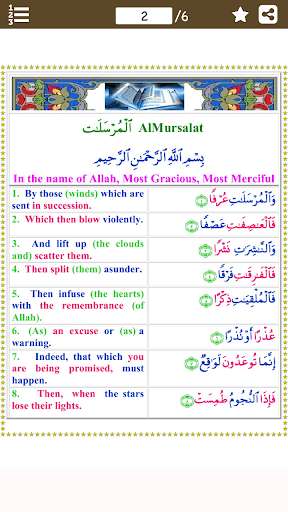 1 2 3
2 /6
ٱلْمُرْسَلَٰت AlMursalat
بِسْمِ ٱللَّهِ ٱلرَّحْمَٰنِ ٱلرَّحِيمِ
In the name of Allah, Most Gracious, Most Merciful
1. By those (winds) which are
sent in succession.
وَٱلْمُرْسَلَٰتِ عُرْفًا ١
2. Which then blow violently.
فَٱلْعَٰصِفَٰتِ عَصْفًا ٢
3. And lift up (the clouds
and) scatter them.
وَٱلنَّٰشِرَٰتِ نَشْرًا ٣
4. Then split (them) asunder.
فَٱلْفَٰرِقَٰتِ فَرْقًا ٤
5. Then infuse (the hearts)
with the remembrance (of
Allah).
فَٱلْمُلْقِيَٰتِ ذِكْرًا ٥
6. (As) an excuse or (as) a
warning.
عُذْرًا أَوْ نُذْرًا ٦
7. Indeed, that which you
are being promised, must
happen.
إِنَّمَا تُوعَدُونَ لَوَٰقِعٌ ٧
8. Then, when the stars
lose their lights.
فَإِذَا ٱلنُّجُومُ طُمِسَتْ ٨